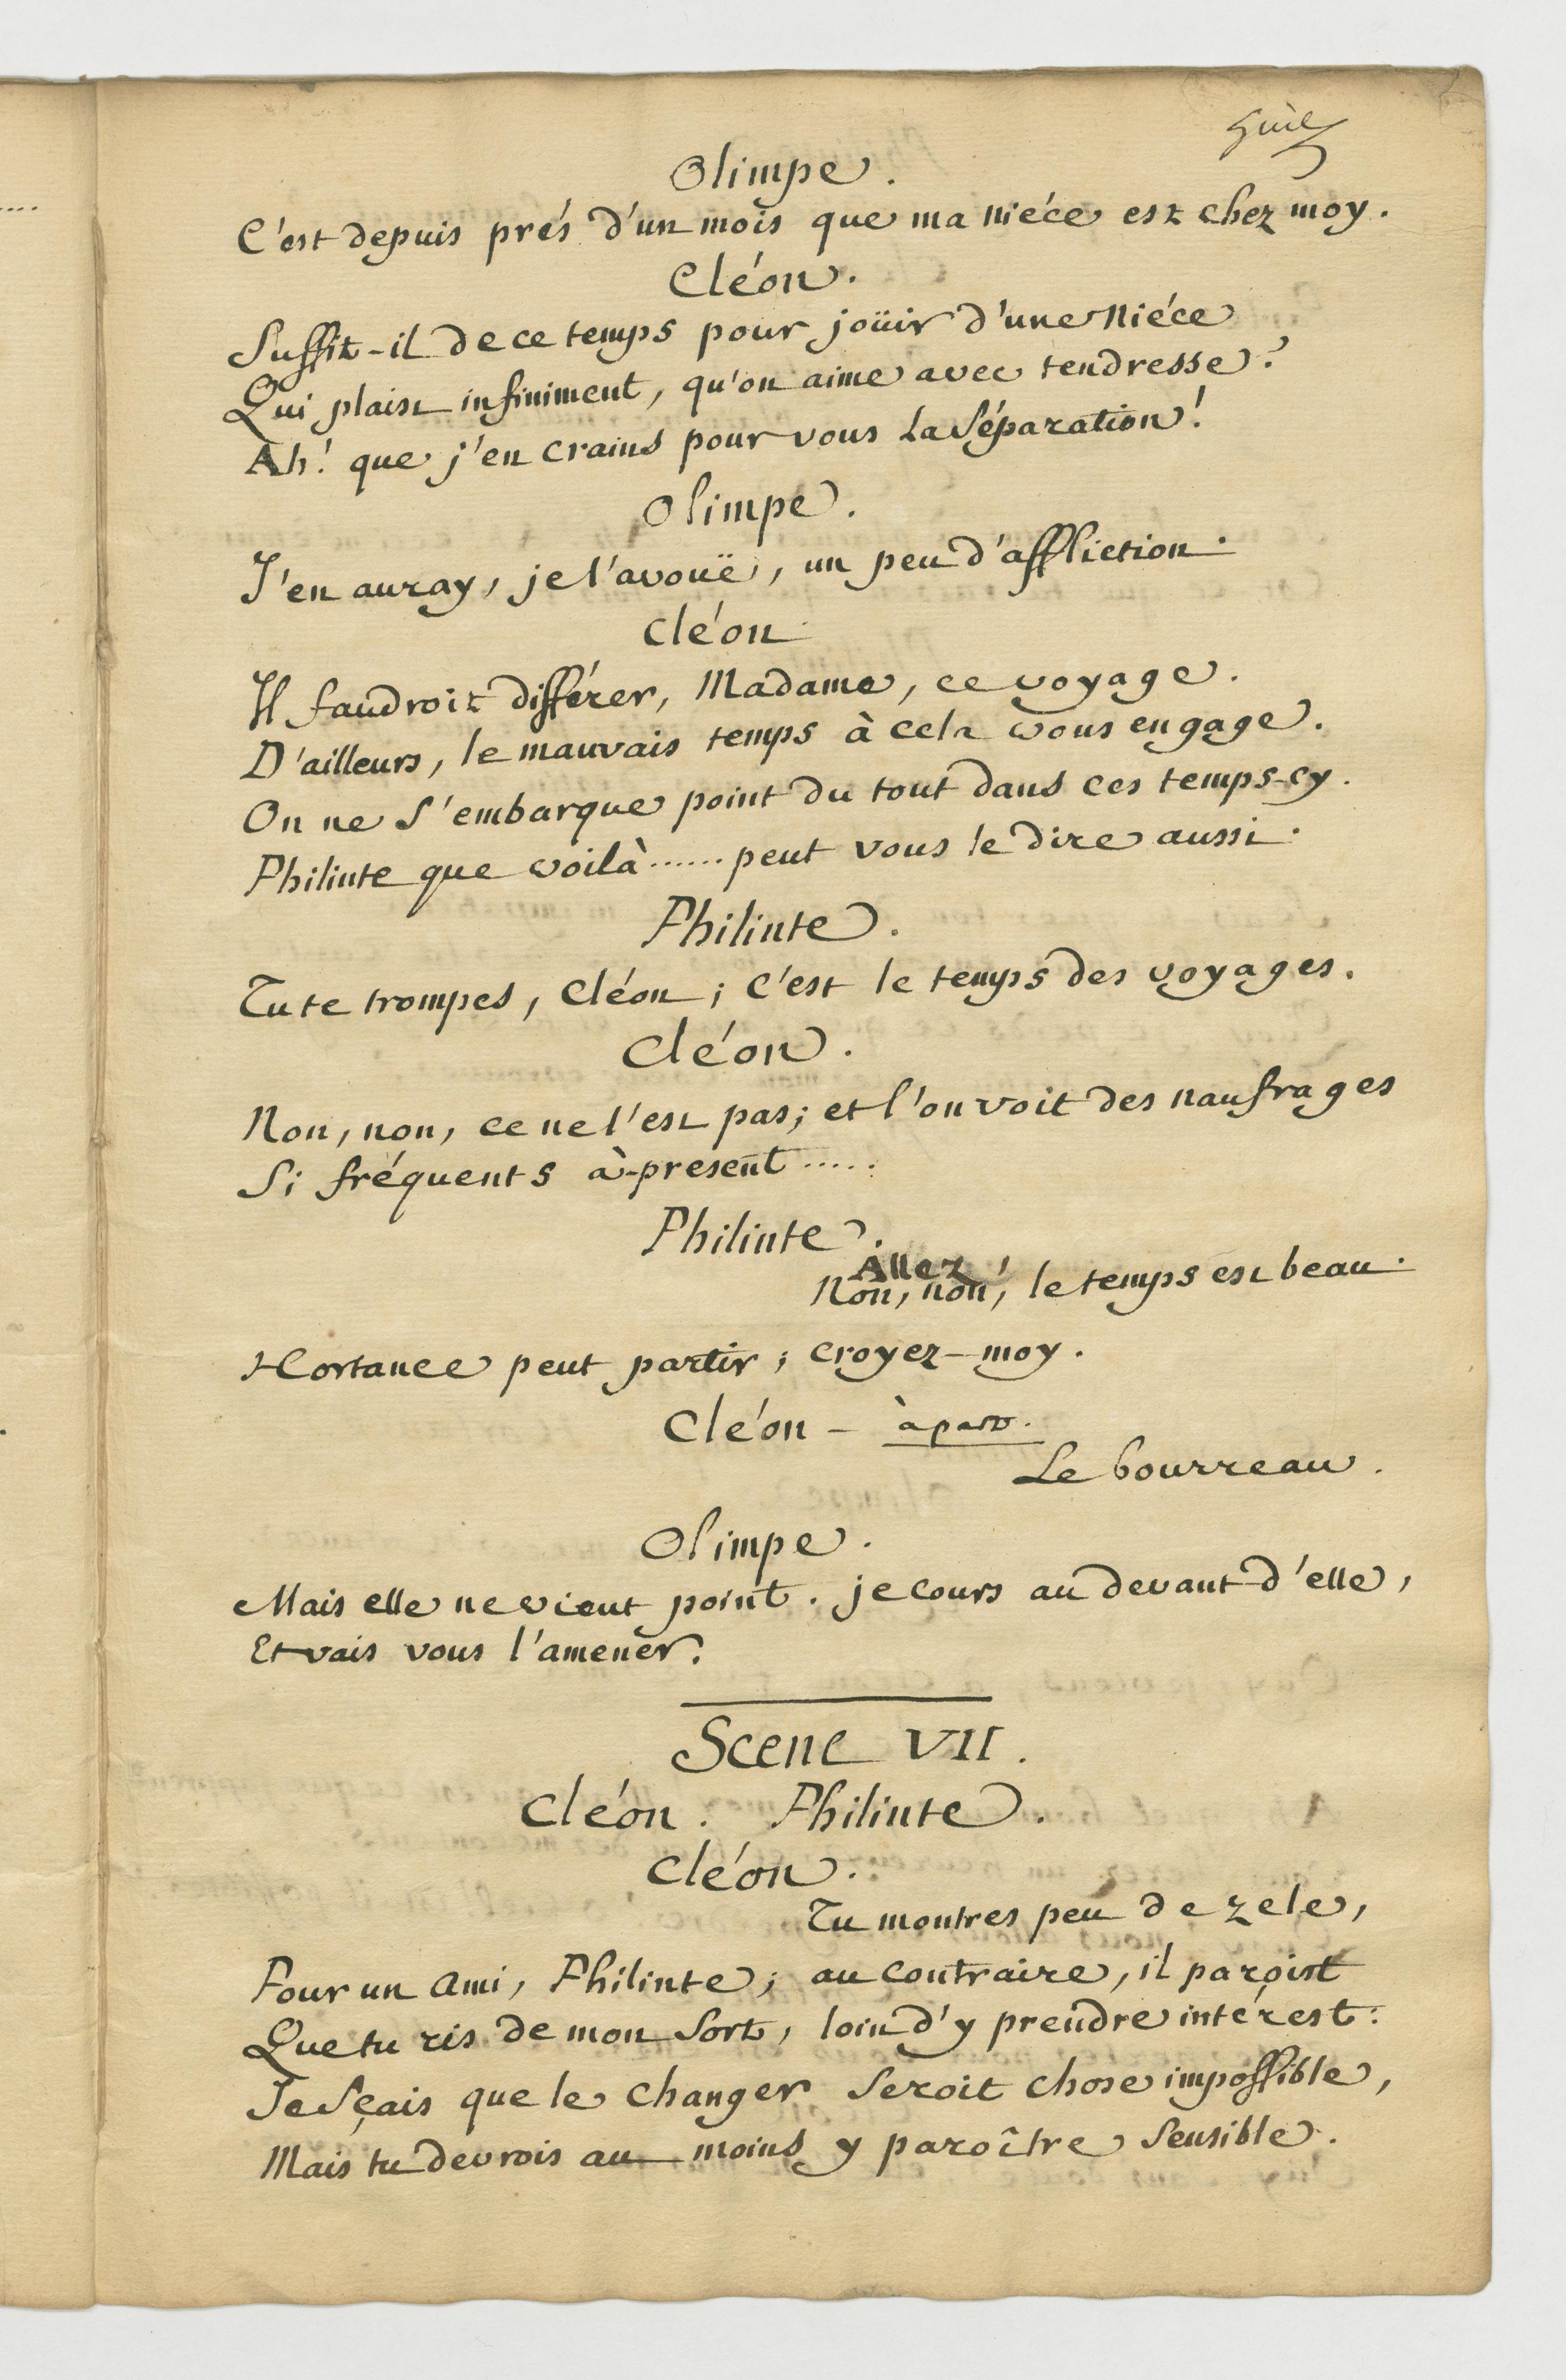 Olimpe.
C'est depuis prés d'un mois que ma niéce est chez moy.
Cléon.
Suffit-il de ce temps pour joüir d'une niéce
Qui plaist infiniment, qu'on aime avec tendresse?
Ah! que j'en crains pour vous la séparation!
Olimpe.
J'en auray, je l'avoüe, un peu d'affliction.
Cléon
Il faudroit différer, Madame, ce voyage.
D'ailleurs, le mauvais temps à cela vous engage.
On ne s'embarque point du tout dans ces temps-cy.
Philinte que voilà...... peut vous le dire aussi.
Philinte.
Tu te trompes, Cléon; c'est le temps des voyages.
Cléon.
Non, non, ce ne l'est pas; et l'on voit des naufrages
Si fréquents à-present.....
Philinte.
Allez
Non, non, le temps est beau.
Hortance peut partir; croyez-moy.
Cléon - à part.
Le bourreau.
Olimpe.
Mais elle ne vient point. je cours au devant d'elle,
Et vais vous l'amener.
Scene VII.
Cléon. Philinte.
Cléon.
Tu montres peu de zele,
Pour un ami, Philinte; au contraire, il paroist
Que tu ris de mon sort, loin d'y prendre intérest:
Je sçais que le changer seroit chose impossible,
Mais tu devrois au moins y paroître sensible.